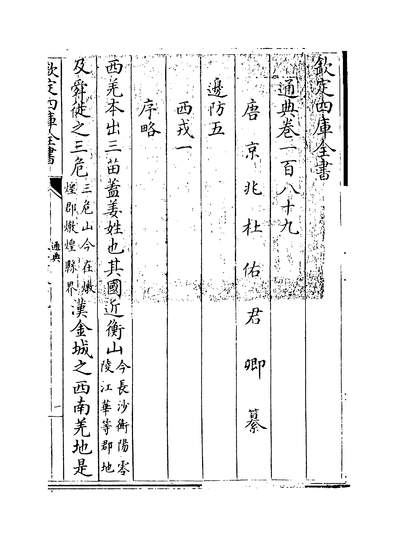 欽定四庫全書
通典卷一百八十九
唐京兆杜佑君卿纂
邊防五
西戎一
序略
西羌本出三苗蓋姜姓也其國近衡山今長沙衡陽零陵江華等郡地
及舜徙之三危三危山今在燉煌郡燉煌縣界漢金城之西南羌地是
欽定四庫全書
通典
一